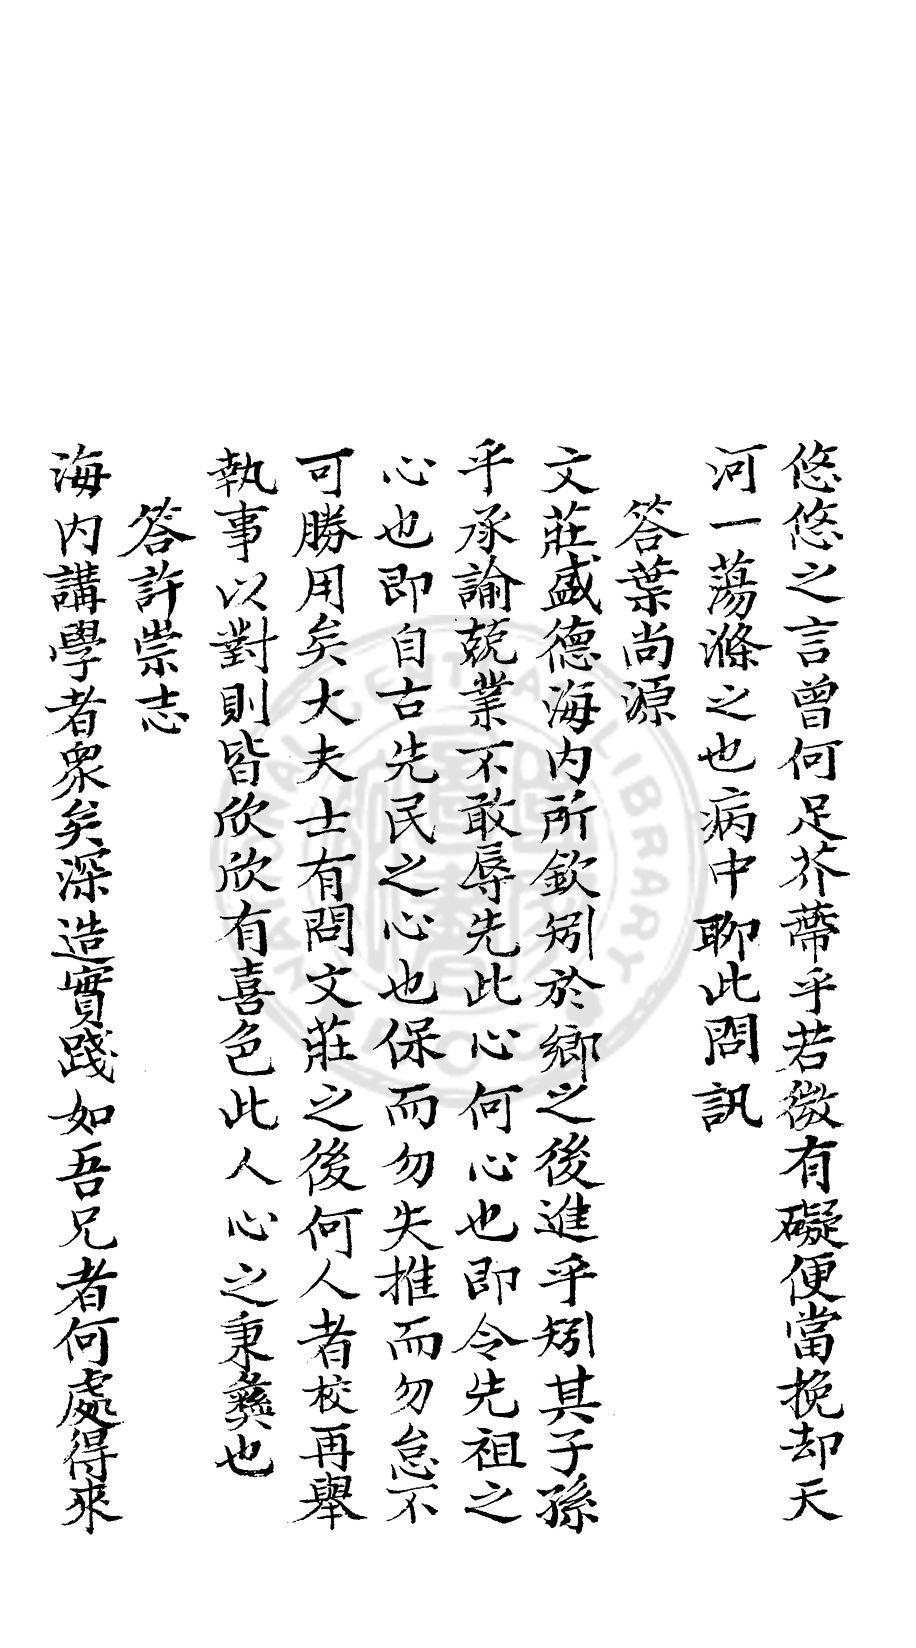 悠悠之言曾何足芥蔕乎若微有礙便當挽却天
河一蕩滌之也病中聊此問訊
答葉尚源
文莊盛德海內所欽矧於鄉之後進乎矧其子孫
乎承諭兢業不敢辱先此心何心也即令先祖之
心也即自古先民之心也保而勿失推而勿怠不
可勝用矣大夫士有問文莊之後何人者校再舉
執事以對則皆欣欣有喜色此人心之秉彝也
答許崇志
海內講學者衆矣深造實踐如吾兄者何處得來
NATIONAL CENTRAL LIBRARY